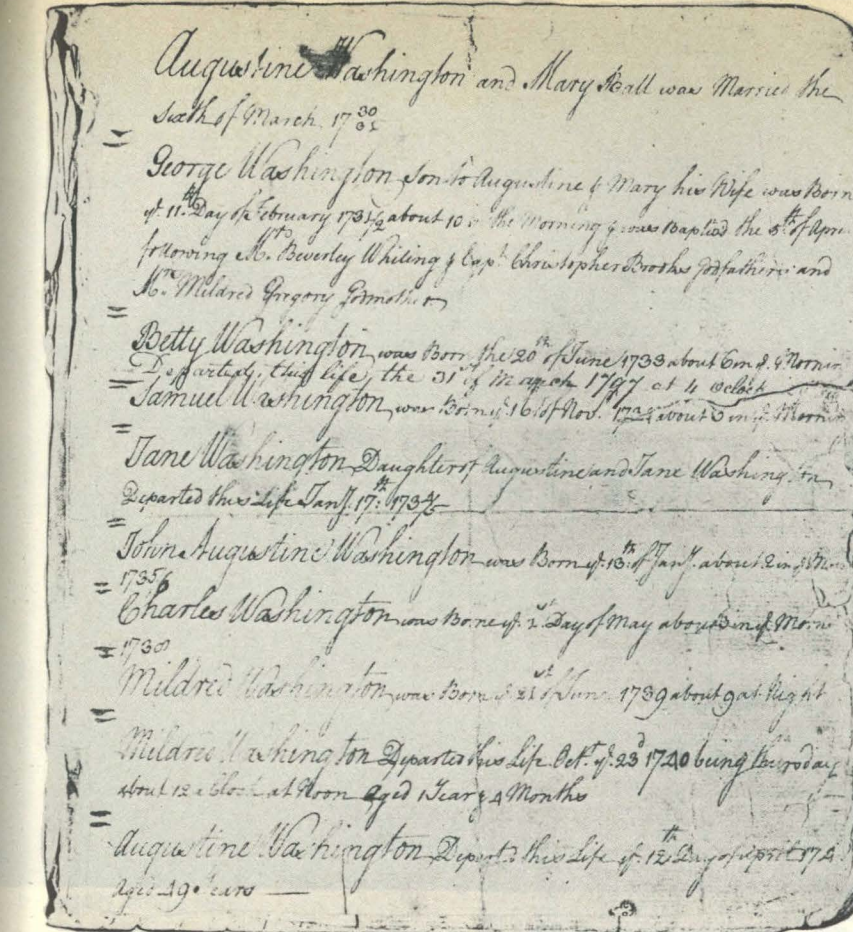 Augustine Washington and Mary Ball was Married the
Sixth of March 17 30/31
George Washington Son to Augustine & Mary his Wife was Born
ye 11th Day of February 1731/2 about 10 in the Morning & was Baptied the 5th of Apri
following Mr Beverley Whiting & Capt Christopher Brooks Godfathers and
Mrs Mildred Gregory Godmother
Betty Washington was Born the 20th of June 1733 about 6 in ye Mornin
Departed this life the 31st of March 1797 at 4 oclock
Samuel Washington was Born ye 16th of Nov. 1734 about 3 in ye Mornin
Jane Washington Daughter of Augustine and Jane Washington
Departed this Life Jany 17th 1734/5
John Augustine Washington was Born ye 13th of Jany about 2 in ye Mor
1735/6
Charles Washington was Borne ye Day of May about 3 in ye Morn
1738
Mildred Washington was Born ye 21st of June 1739 about 9 at Night
Mildred Washington Departed this Life Octr ye 23d 1740 being thursday
about 12 a Clock at Noon Aged 1 Year & 4 Months
Augustine Washington Departed this Life ye 12th Day of April 174
Aged 49 Years